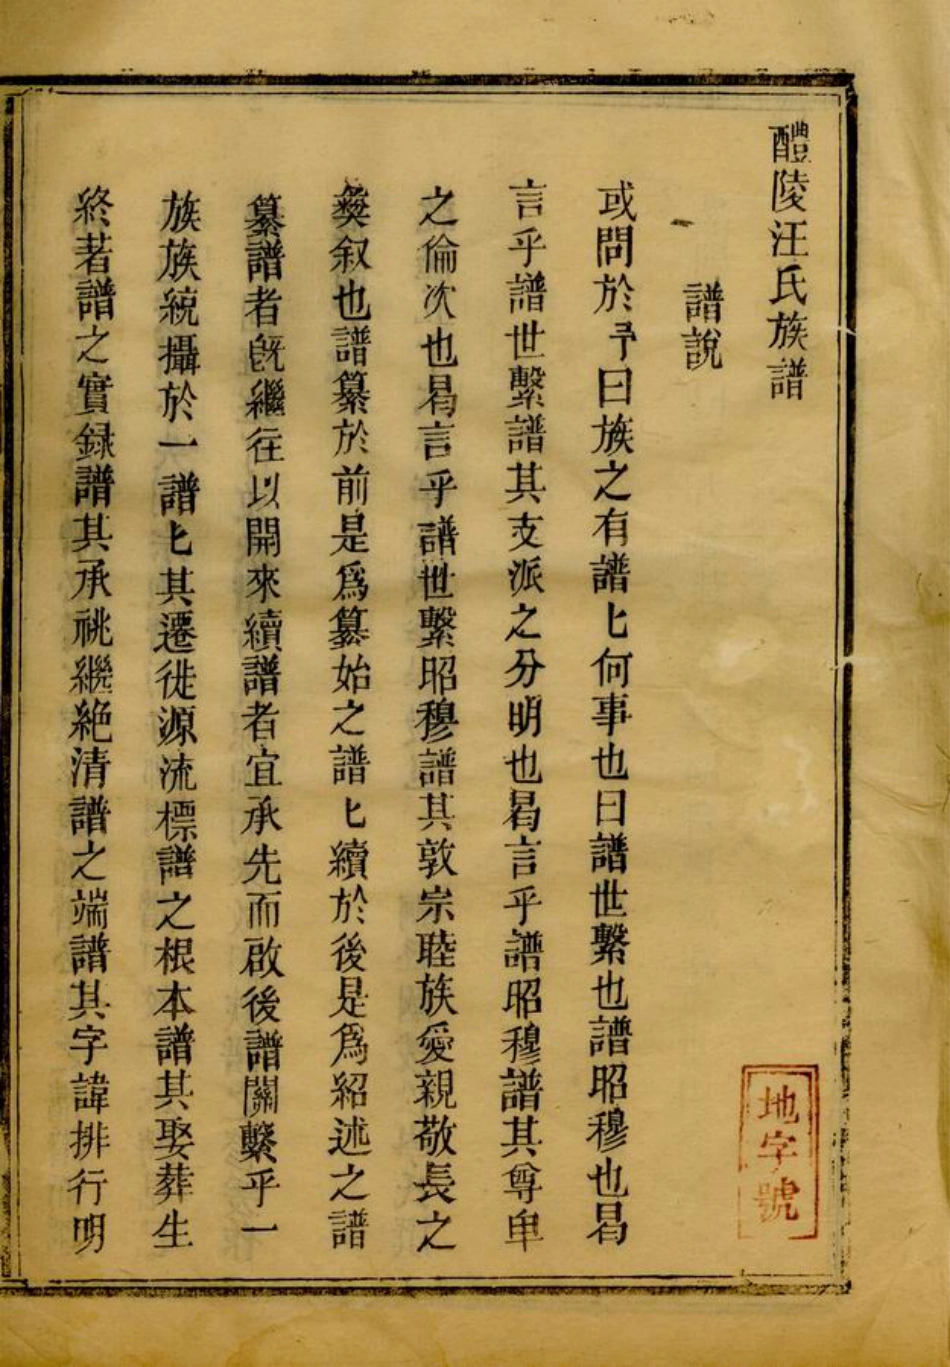 醴陵汪氏族譜
譜說
或問於予曰族之有譜匕何事也曰譜世繫也譜昭穆也曷
言乎譜世繫譜其支派之分明也曷言乎譜昭穆譜其尊卑
之倫次也曷言乎譜世繫昭穆譜其敦宗睦族愛親敬長之
彜叙也譜纂於前是爲纂始之譜匕續於後是爲紹述之譜
纂譜者旣繼往以開來續譜者宜承先而啟後譜關繫乎一
族族統攝於一譜匕其遷徙源流標譜之根本譜其娶葬生
終著譜之實録譜其承祧繼絶清譜之端譜其字諱排行明
地字號